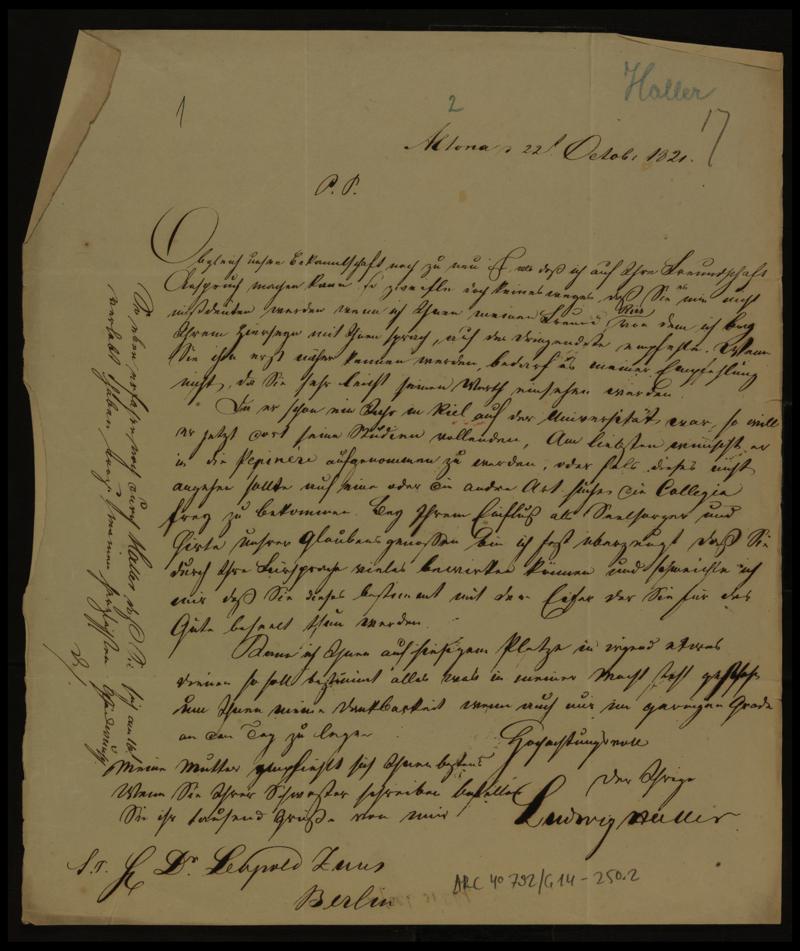 Haller
1
2
17
Altona d 22t Octob. 1821.
P. P.
Obgleich unsre Bekanntschaft noch zu neu ist als daß ich auf Ihre Freundschaft
Anspruch machen kann so zweifle doch keinesweges, daß Sie es mir nicht
mißdeuten werden wenn ich Ihnen meinen Freund von dem ich bey
Ihrem Hierseyn mit Ihnen sprach, auf das dringendste empfehle. Wenn
Sie ihn erst näher kennen werden, bedarf es meiner Empfehlung
nicht, da Sie sehr leicht seinen Werth einsehen werden.
Da er schon ein Jahr in Kiel auf der Universität war, so will
er jetzt dort seine Studien vollenden, Am liebsten wünscht er
in die Pepinère aufgenommen zu werden, oder falls dieses nicht
angehen sollte auf eine oder die andre Art die Collegia
frey zu bekommen. Bey Ihrem Einfluß als Seelsorger und
Hirte unsrer Glaubensgenossen bin ich fest überzeugt daß Sie
durch Ihre Fürsprache vieles bewirken können und schmeichle ich
mir daß Sie dieses bestimmt mit dem Eifer der Sie für das
Gute beseelt thun werden.
Kann ich Ihnen auf hiesigem Platze in irgend etwas
dienen so soll bestimmt alles was in meiner Macht steht geschehn
um Ihnen meine Dankbarkeit wenn auch nur im geringen Grade
an den Tag zu legen
Hochachtungsvoll
Meine Mutter empfiehlt sich Ihnen bestens
der Ihrige
Wenn Sie Ihrer Schwester schreiben
Sie ihr tausend Grüße von mir
Ludwig Haller
S. T. H Dr. Leopold Zunz
Berlin
ARC 4° 792/G14-250.2
So eben erfahre noch durch Haller daß Sie sich
haben meinen herzlichsten